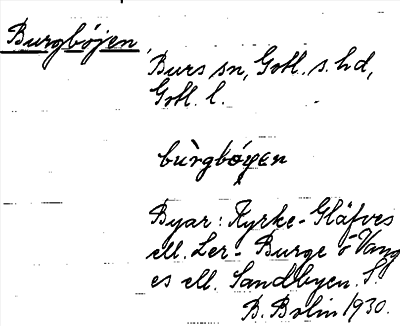 Burgbøjen,
Burs sn, Gotl. s. hd,
Gotl. l.
bùrgbøyen
Byar: Kyrke-Gläfves
ell. Ler- Burge o Vang
es ell. Sandbyen. S.
B. Bolin 1930.